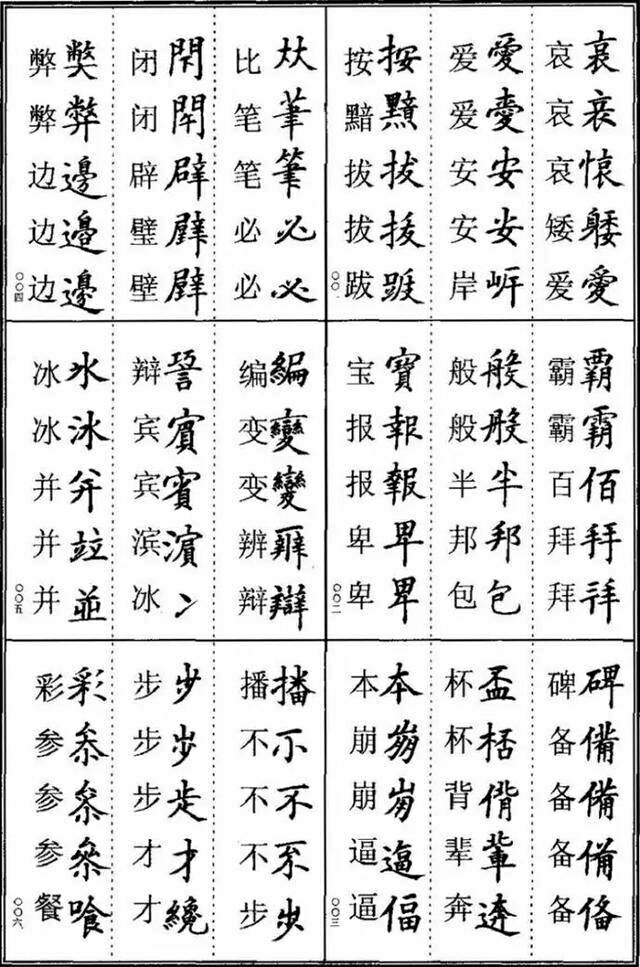 哀 哀
哀
哀
矮
爱 愛
爱 愛
爱
安 安
安 安
岸 岍
按 按
黯 黯
拔 拔
拔 拔
跋
〇〇一
霸 覇
霸 霸
百 佰
拜 拜
拜
般 般
般 般
半 半
邦 邦
包 包
宝 寶
报 報
报 報
卑 卑
卑 卑
〇〇二
碑 碑
备 備
备 備
备 備
备 俻
杯 盃
杯 桮
背 偝
辈 輩
奔
本 本
崩
崩
逼 逼
逼 偪
〇〇三
比
笔 笔
笔 筆
必 必
必 必
闭 閇
闭 閈
辟 辟
璧
壁
弊
弊 弊
边 邊
边 邊
边 邊
〇〇四
编 編
变 變
变 變
辨
辩 辯
辩
宾 賓
宾 賓
滨 濵
冰 冫
冰 氷
冰 冰
并 并
并 竝
并 並
〇〇五
播 播
不 不
不 不
不
步 步
步 步
步 步
步
才 才
才 纔
彩 彩
参 叅
参 叅
参 叅
餐 飡
〇〇六